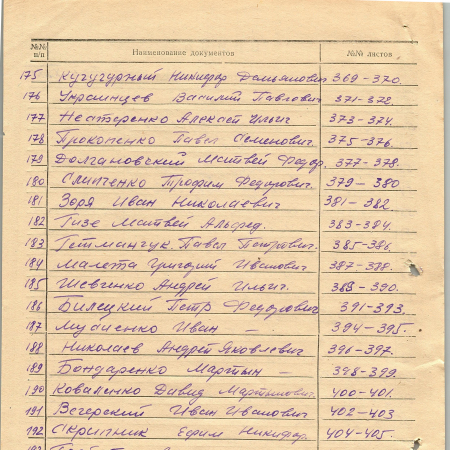 №№ п/п Наименование документов №№ листов
175 Кучугурный Никифор Демьянович 369-370.
176 Украинцев Василий Павлович 371-372.
177 Нестеренко Алексей Ильич 373-374.
178 Прокопенко Павел Семенович. 375-376.
179 Долгановский Матвей Федор. 377-378.
180 Слипченко Трофим Федорович. 379-380
181 Зоря Иван Николаевич 381-382.
182 Тизе Матвей Альфред. 383-384.
183 Гетманчук Павел Петрович. 385-386.
184 Малета Григорий Иванович 387-388.
185 Шевченко Андрей Ильич. 389-390.
186 Билецкий Петр Федорович 391-393.
187 Мусиенко Иван — 394-395.
188 Николаев Андрей Яковлевич 396-397.
189 Бондаренко Мартын — 398-399.
190 Коваленко Давид Мартынович. 400-401.
191 Вегерский Иван Иванович 402-403
192 Скрипник Ефим Никифор. 404-405.